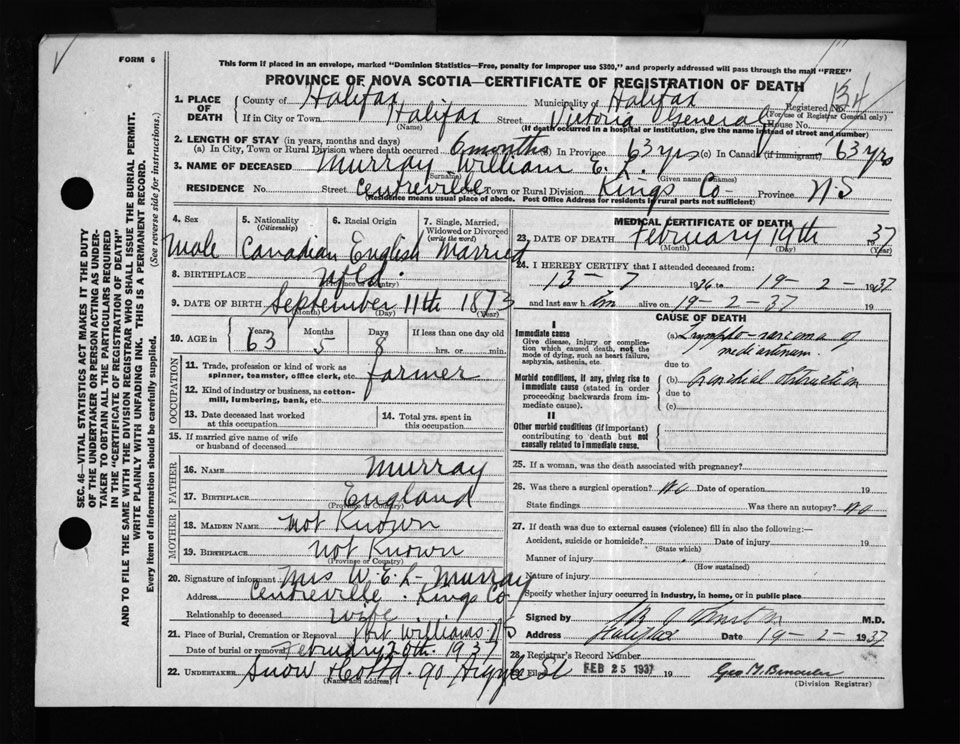 FORM 6
This form if placed in an envelope, marked "Dominion Statistics—Free, penalty for improper use $300," and properly addressed will pass through the mail "FREE"
PROVINCE OF NOVA SCOTIA—CERTIFICATE OF REGISTRATION OF DEATH
134
1. PLACE OF DEATH
County of Halifax Municipality of Halifax Registered No.
(For use of Registrar General only)
If in City or Town Halifax Street Victoria General House No.
(Name) (If death occurred in a hospital or institution, give the name instead of street and number)
2. LENGTH OF STAY (in years, months and days)
(a) In City, Town or Rural Division where death occurred 6 months (b) In Province 63 yrs (c) In Canada (if immigrant) 63 yrs
3. NAME OF DECEASED Murray William E. L.
(Surname) (Given names)
RESIDENCE No. Street Centreville City, Town or Rural Division Kings Co- Province N-S
(Residence means usual place of abode. Post Office Address for residents in rural parts not sufficient)
4. Sex
Male
5. Nationality (Citizenship)
Canadian
6. Racial Origin
English
7. Single, Married, Widowed or Divorced (write the word)
Married
8. BIRTHPLACE Nfld.
(Province or Country)
9. DATE OF BIRTH September 11th 1873
(Month) (Day) (Year)
10. AGE in Years 63 Months 5 Days 8 If less than one day old
hrs. or min.
OCCUPATION
11. Trade, profession or kind of work as spinner, teamster, office clerk, etc. farmer
12. Kind of industry or business, as cotton-mill, lumbering, bank, etc.
13. Date deceased last worked at this occupation
14. Total yrs. spent in this occupation
15. If married give name of wife or husband of deceased
FATHER
16. NAME Murray
17. BIRTHPLACE England
(Province or Country)
MOTHER
18. MAIDEN NAME Not Known
19. BIRTHPLACE Not Known
(Province or Country)
20. Signature of informant Mrs W. E. L- Murray
Address Centreville . Kings Co-
Relationship to deceased wife
21. Place of Burial, Cremation or Removal Port Williams. NS
Date of burial or removal February 20th 1937
22. UNDERTAKER Snow & Co Ltd. 90 Argyle St
(Name and address)
MEDICAL CERTIFICATE OF DEATH
23. DATE OF DEATH February 19th 1937
(Month) (Day) (Year)
24. I HEREBY CERTIFY that I attended deceased from:
13 - 7 1936 to 19 - 2 - 1937
and last saw h im alive on 19-2-37 19
CAUSE OF DEATH
I
Immediate cause
Give disease, injury or complication which caused death, not the mode of dying, such as heart failure, asphyxia, asthenia, etc.
(a) Lympho-sarcoma of
mediastinum.
due to
Morbid conditions, if any, giving rise to immediate cause (stated in order proceeding backwards from immediate cause).
(b) Bronchial obstruction
due to
(c)
II
Other morbid conditions (if important) contributing to death but not causally related to immediate cause.
25. If a woman, was the death associated with pregnancy?
26. Was there a surgical operation? No Date of operation 19
State findings Was there an autopsy? No
27. If death was due to external causes (violence) fill in also the following:—
Accident, suicide or homicide? Date of injury 19
(State which)
Manner of injury
(How sustained)
Nature of injury
Specify whether injury occurred in industry, in home, or in public place
Signed by M.D.
Address Halifax Date 19-2-1937
28. Registrar's Record Number
Filed FEB 25 1937 19 Geo M.
(Division Registrar)
SEC. 46—VITAL STATISTICS ACT MAKES IT THE DUTY
OF THE UNDERTAKER OR PERSON ACTING AS UNDER-
TAKER TO OBTAIN ALL THE PARTICULARS REQUIRED
IN THE "CERTIFICATE OF REGISTRATION OF DEATH"
AND TO FILE THE SAME WITH THE DIVISION REGISTRAR WHO SHALL ISSUE THE BURIAL PERMIT.
WRITE PLAINLY WITH UNFADING INK. THIS IS A PERMANENT RECORD.
Every item of information should be carefully supplied. (See reverse side for instructions.)